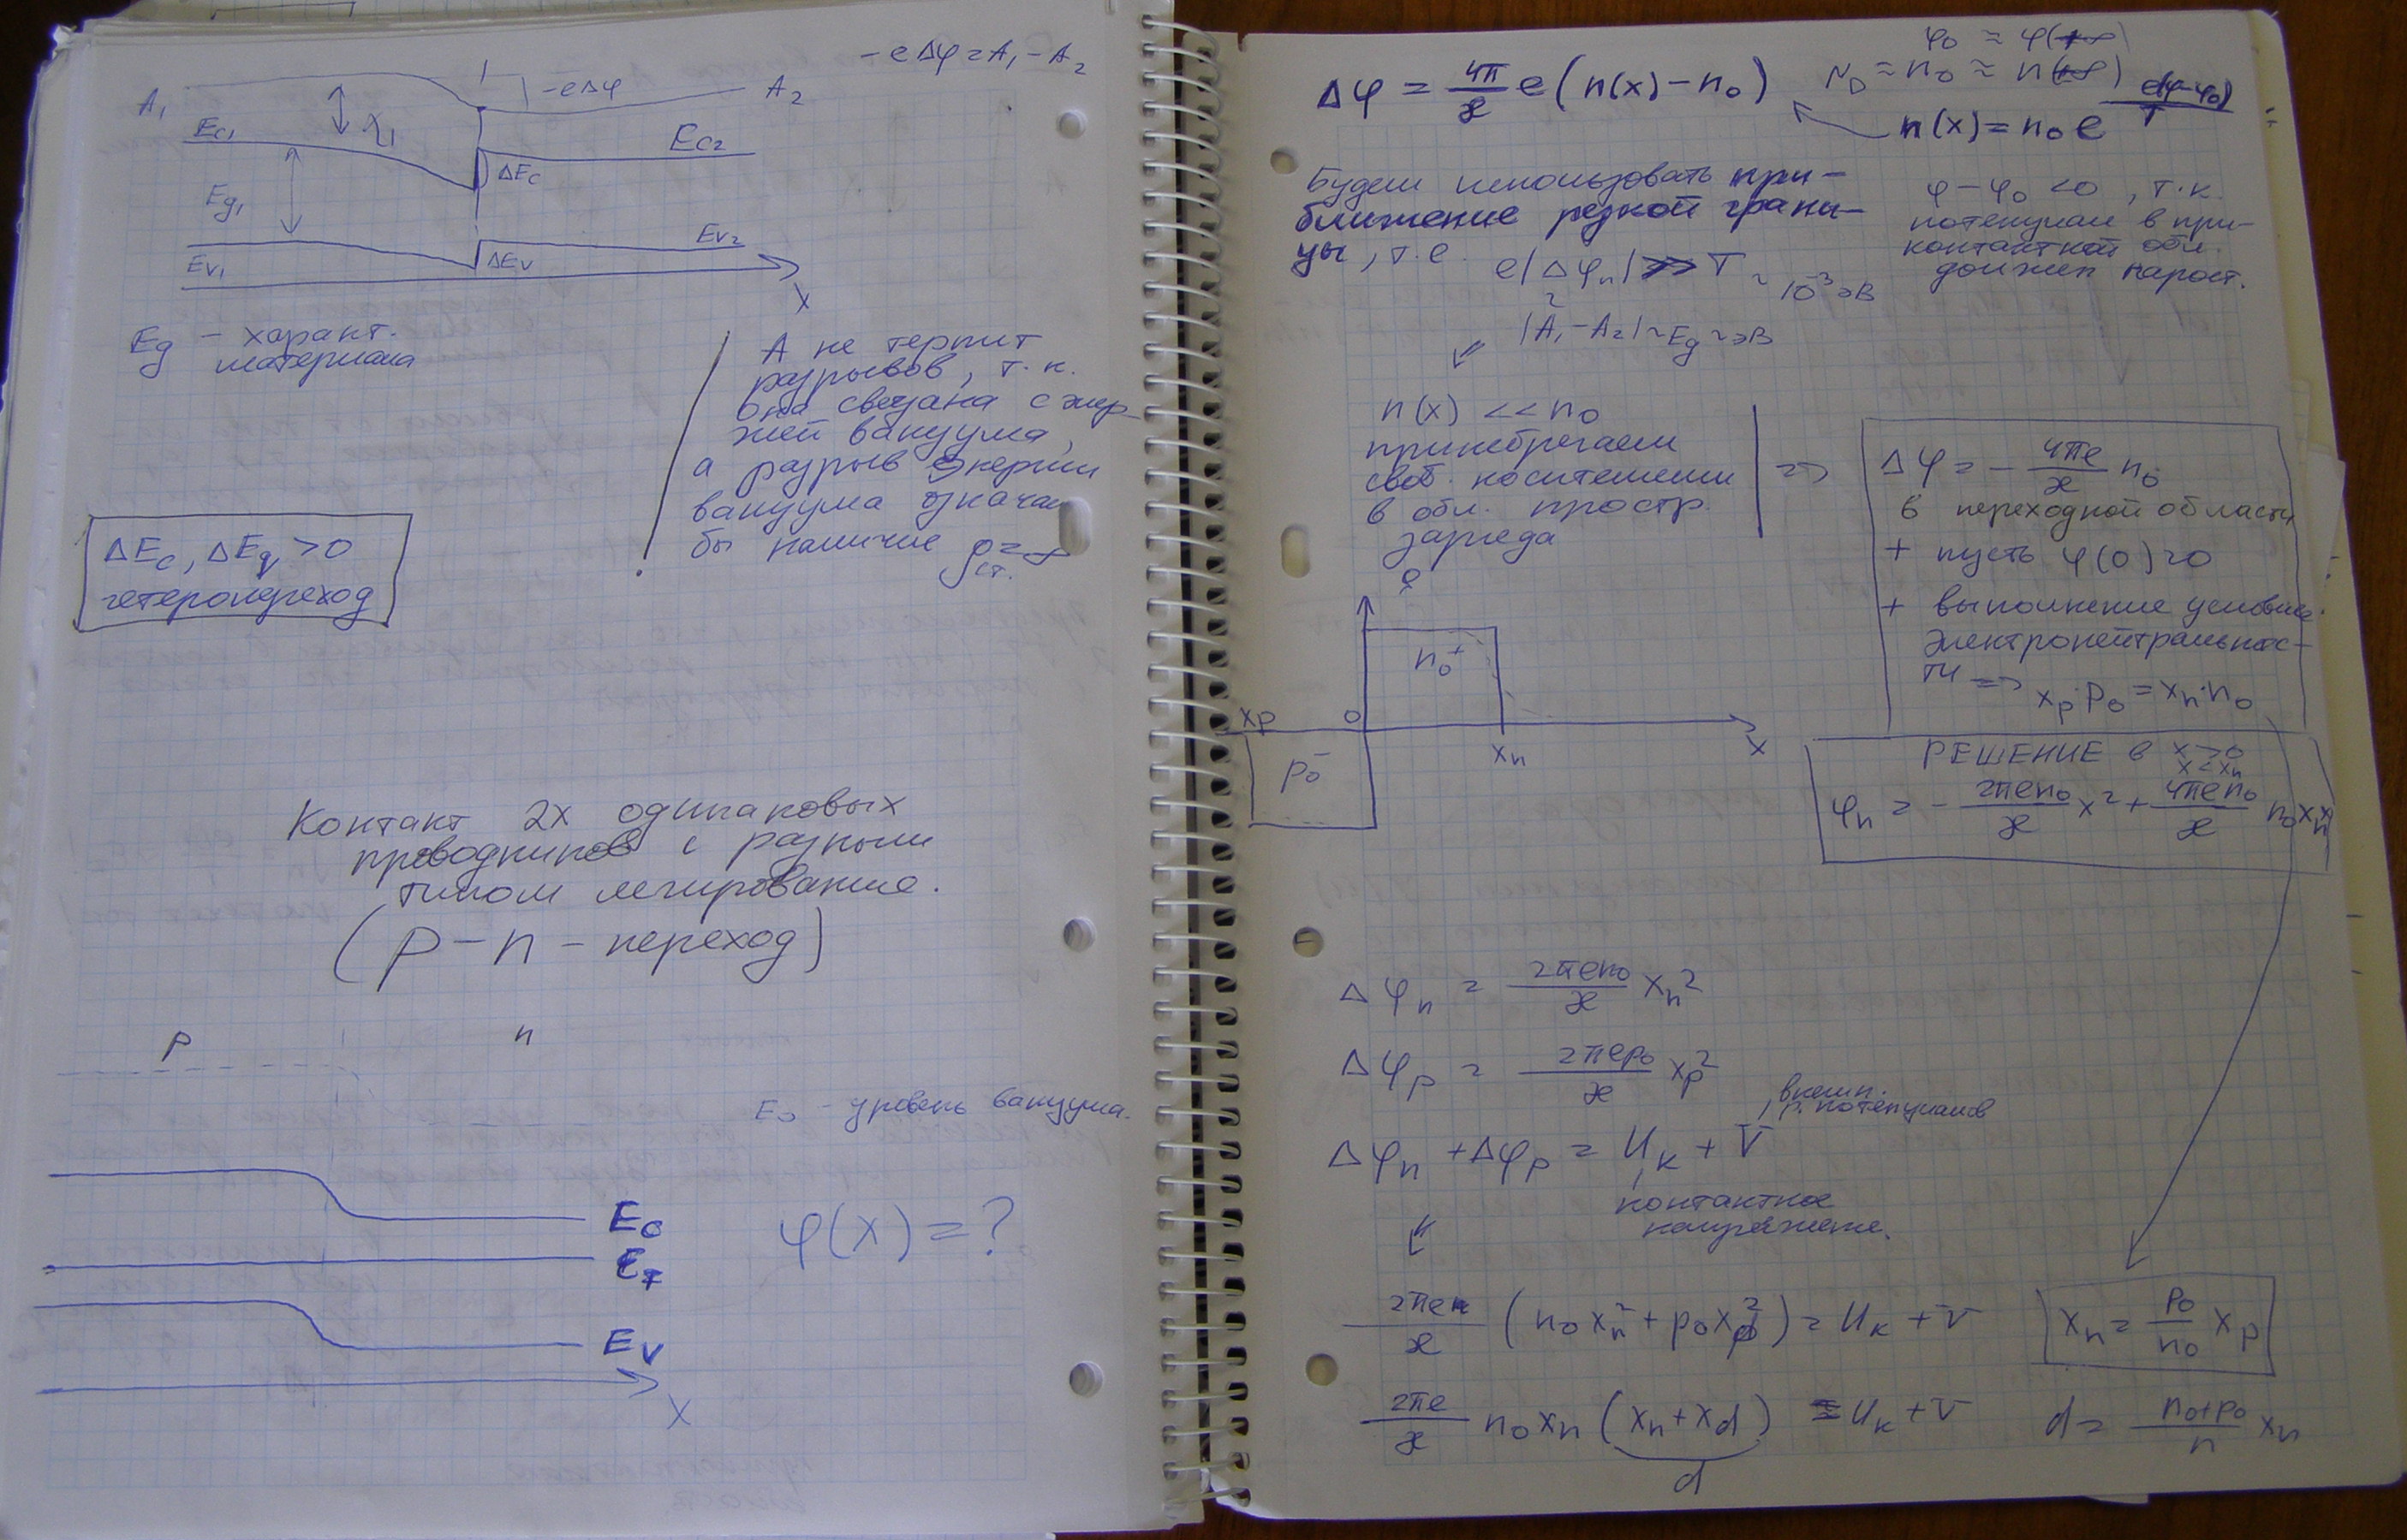 -eΔφ = A₁ - A₂
A₁
-eΔφ
A₂
χ₁
Ec₁
Ec₂
ΔEc
Eg₁
Ev₂
Ev₁
ΔEv
x
Eg - характ.
материала
А не терпит
разрывов, т.к.
она связана с энер-
гией вакуума,
а разрыв энергии
вакуума означал
бы наличие ρ = ∞
ст.
ΔEc, ΔEg > 0
гетеропереход
Контакт 2х одинаковых
проводников с разным
типом легирование.
(p-n-переход)
p
n
E₀ - уровень вакуума.
Ec
φ(x) = ?
Ev
x
φ₀ ≈ φ(+∞)
Δφ = 4π/æ e (n(x) - n₀)
N_D ≈ n₀ ≈ n(+∞)
n(x) = n₀ e^(e(φ-φ₀)/T)
Будем использовать при-
ближение резкой грани-
цы, т.е. e|Δφn| >> T ~ 10⁻³ эВ
|A₁ - A₂| ~ Eg ~ эВ
φ - φ₀ < 0, т.к.
потенциал в при-
контактной обл.
должен нараст.
n(x) << n₀
принебрегаем
своб. носителями
в обл. простр.
заряда
=>
Δφ = - 4πe/æ n₀
в переходной области
+ пусть φ(0) = 0
+ выполнение условие
электронейтральнос-
ти => xp·p₀ = xn·n₀
ρ
n₀⁺
xp
0
xn
x
p₀⁻
РЕШЕНИЕ в x > 0
x < xn
φn = - 2πen₀/æ x² + 4πen₀/æ n₀xnx
Δφn = 2πen₀/æ xn²
Δφp = 2πep₀/æ xp²
внешн.
р. потенциалов
Δφn + Δφp = Uк + V
контактное
напряжение.
2πe/æ (n₀xn² + p₀xp²) = Uк + V
xn = p₀/n₀ xp
2πe/æ n₀xn (xn + xd) = Uк + V
d = n₀+p₀/n xn
d